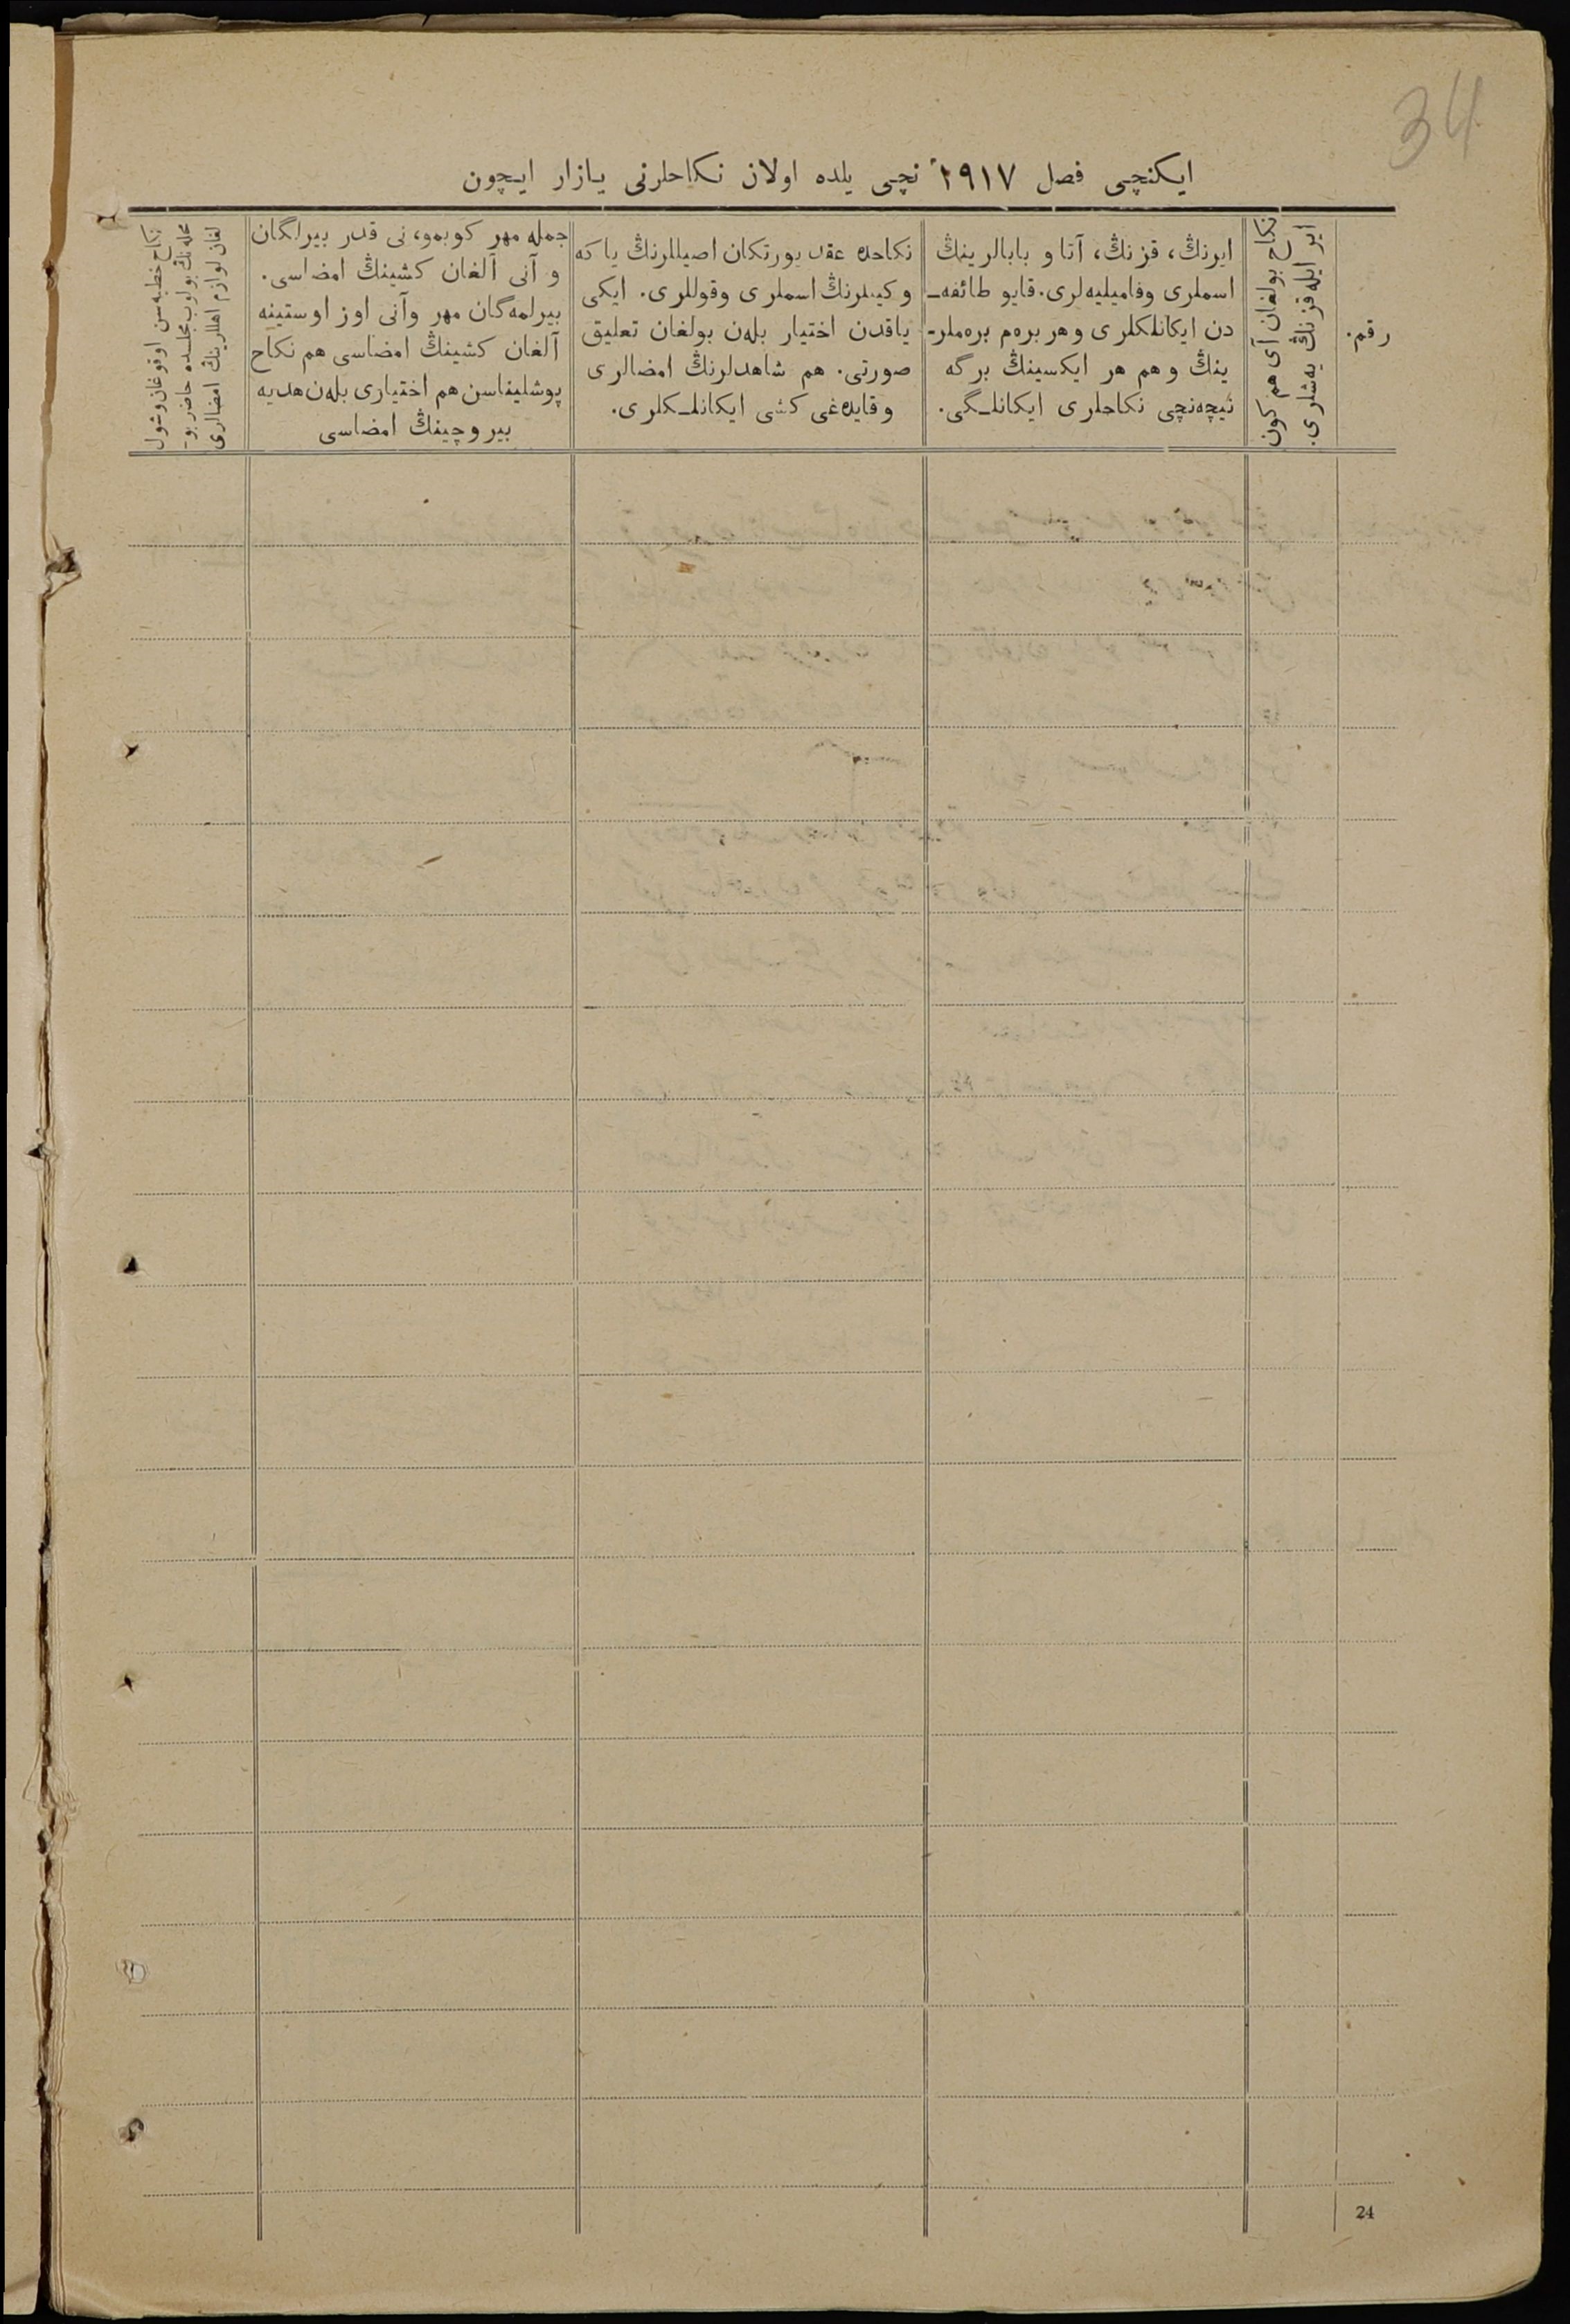 34
ایکنچی فصل ۱۹۱۷ نچی یلده اولان نکاحلرنی یازار ایچون
رقم.
نکاح بولغان آی هم کون
ایر ایله قزنڭ یه‌شلری.
ایرنڭ، قزنڭ، آتا و بابالرینڭ
اسملری وفامیلیه‌لری. قایو طائفه‌ـ
دن ایکانلکلری وهر بره‌م بره‌ملرـ
ینڭ وهم هر ایکسینڭ برگه
نیچه‌نچی نکاحلری ایکانلـگی.
نکاحده عقد یورتکان اصیللرنڭ یاکه
وکیللرنڭ اسملری وقوللری. ایکی
یاقدن اختیار بله‌ن بولغان تعلیق
صورتی. هم شاهدلرنڭ امضالری
وقایده‌غی کشی ایکانلـکلری.
جمله مهر کوبمو، نی قدر بیرلگان
و آنی آلغان کشینڭ امضاسی.
بیرلمه‌گان مهر وآنی اوز اوستینه
آلغان کشینڭ امضاسی هم نکاح
پوشلیناسن هم اختیاری بله‌ن هدیه
بیروچینڭ امضاسی
نکاح خطبه‌سن اوقوغان وشول
محله‌نڭ بولوب مجلسده حاضر بوـ
لغان لوازم اهللرینڭ امضالری
24